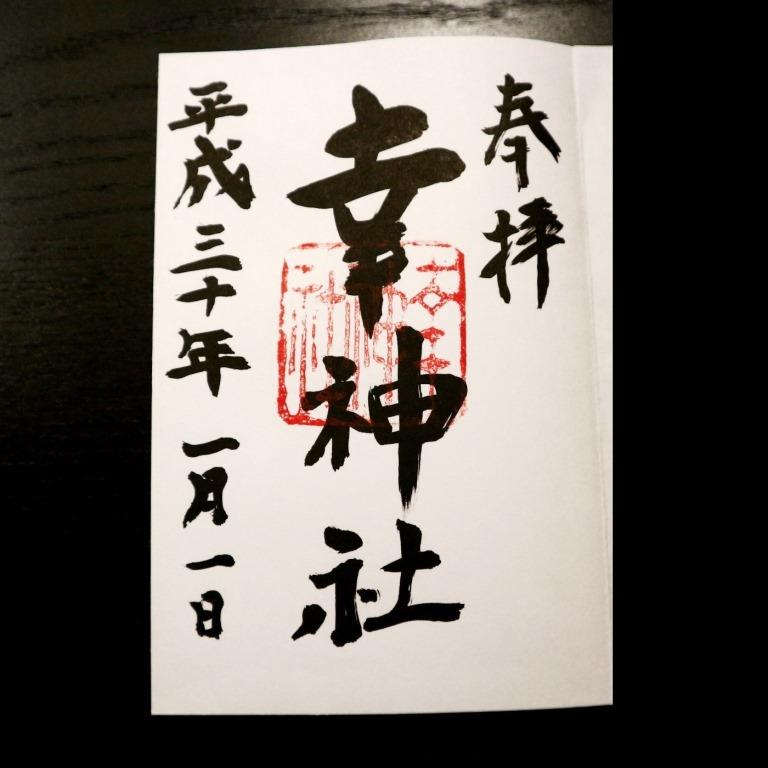 奉拝
幸神社
平成三十年一月一日